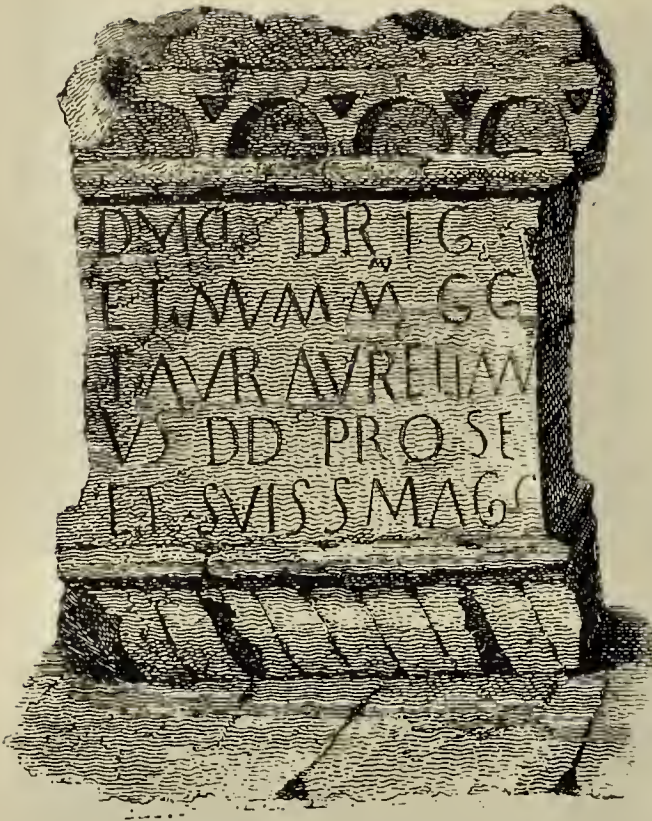 DVICI BRIG
ET NVMM GG
T AVR AVRELIAN
VS DD PRO SE
ET SVIS S MAG S